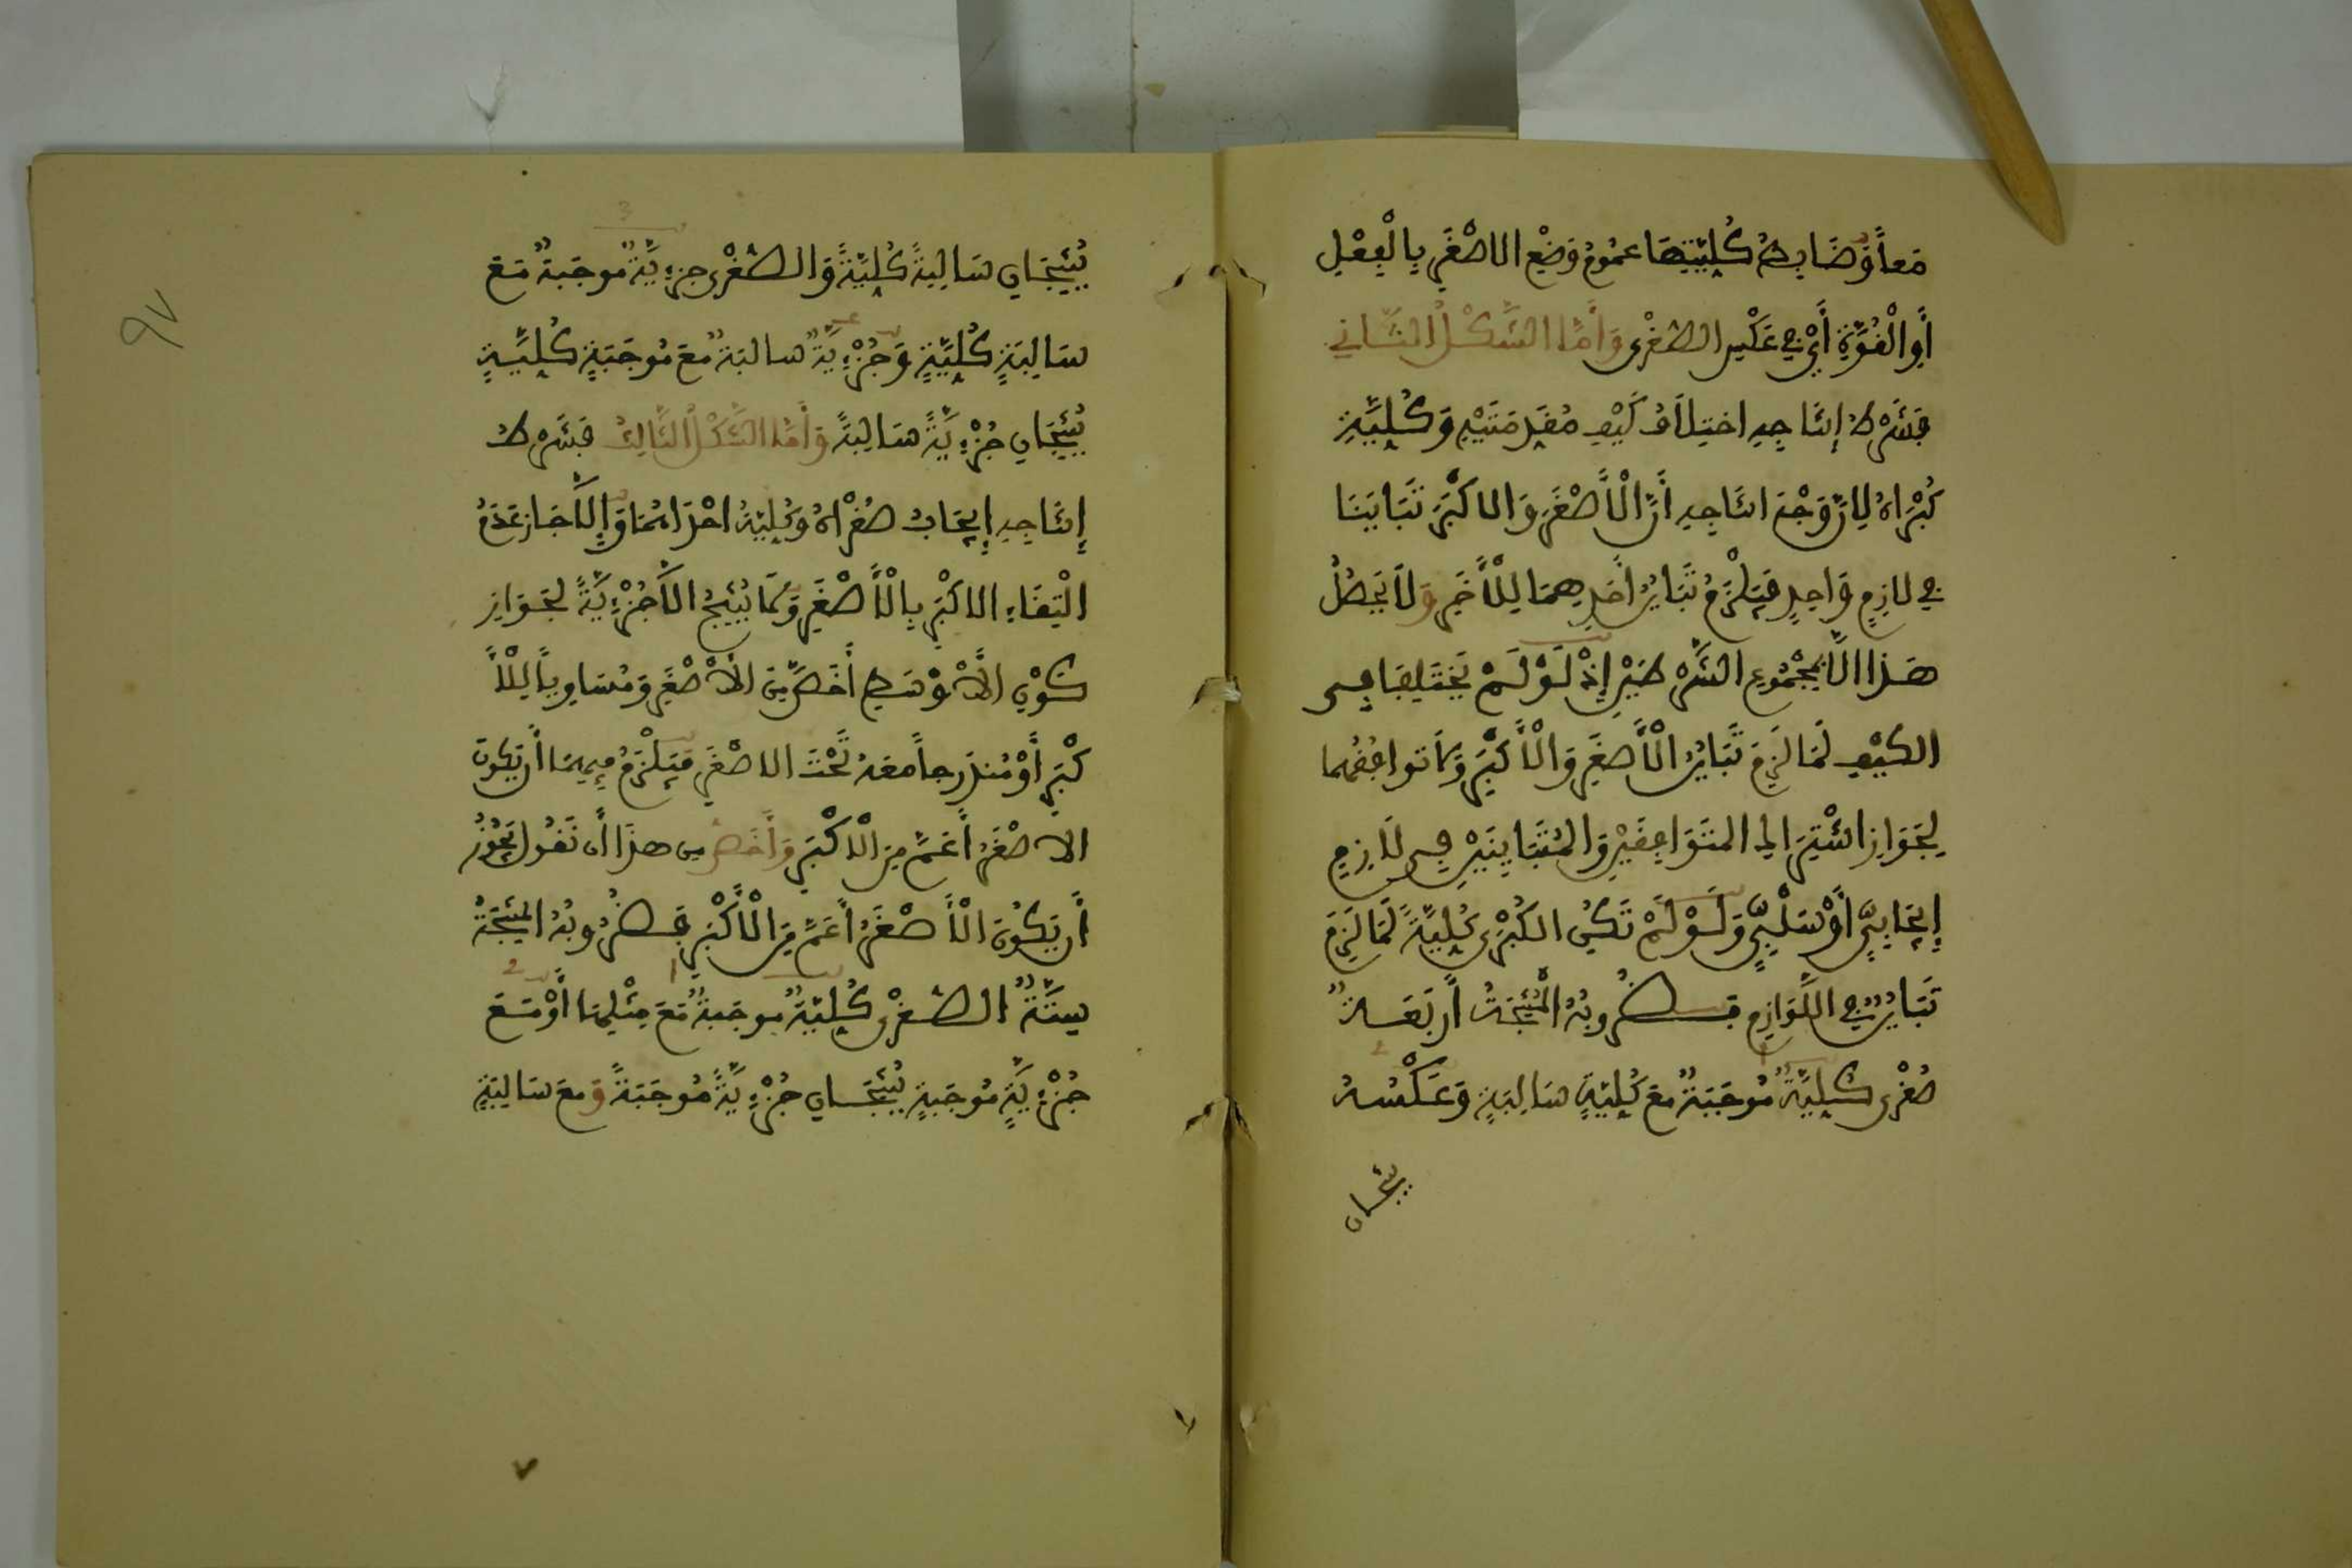 مَعاً وَضَابِطُ كُلِّيَّتِهَا عُمُومُ وَضْعِ الاصْغَرِ بِالْفِعْلِ
أَوِ الْقُوَّةِ أَيْ فِي عَكْسِ الصُّغْرَى وَأَمَّا الشَّكْلُ الثَّانِي
فَشَرْطُ إِنْتَاجِهِ اخْتِلَافُ كَيْفِ مُقَدِّمَتَيْهِ وَكُلِّيَّةِ
كُبْرَاهُ لِأَنَّ وَجْهَ انتَاجِهِ أَنَّ الْأَصْغَرَ وَالاكْبَرَ تَبَايَنَا
فِي لازِمٍ وَاحِدٍ فَيَلْزَمُ تَبَايُنُ أَحَدِهِمَا لِلْأَخَرِ وَلَا يَحْصُلُ
هَذَا الَّا بِمَجْمُوعِ الشَّرْطَيْنِ إِذْ لَوْ لَمْ يَخْتَلِفَا فِي
الكَيْفِ لَمَا لَزِمَ تَبَايُنُ الْأَصْغَرِ وَالْأَكْبَرِ وَلَا تَوَافُقُهُمَا
لِجَوَازِ اشْتِرَاكِ المُتَوَافِقَيْنِ وَالمُتَبَايِنَيْنِ فِي لَازِمٍ
إِيجَابِيٍّ أَوْ سَلْبِيٍّ وَلَوْ لَمْ تَكُنِ الكُبْرَى كُلِّيَّةً لَمَا لَزِمَ
تَبَايُنٌ فِي اللَّوَازِمِ فَضُرُوبُهُ الْمُنْتِجَةُ أَرْبَعَةٌ
صُغْرَى كُلِّيَّةٌ مُوجَبَةٌ مَعَ كُلِّيَّةٍ سَالِبَةٍ وَعَكْسُهُ
ينتجان
97
3
يُنْتِجَانِ سَالِبَةً كُلِّيَّةً وَالصُّغْرَى جزءِيَّةٌ موجَبةٌ مَعَ
سَالِبَةٍ كُلِّيَّةٍ وَجُزْءِيَّةٌ سالبَةٌ مَعَ مُوجَبَةٍ كُلِّيَّةٍ
يُنْتِجَانِ جُزْءِيَّةً سَالِبَةً وَأَمَّا الشَّكْلُ الثَّالِثُ فَشَرْطُ
إِنْتَاجِهِ إِيجَابُ صُغْرَاهُ وَكُلِّيَّةُ احْدَاهُمَا وَإِلَّا جَازَ عَدَمُ
الْتِقَاءِ الاكْبَرِ بِالْأَصْغَرِ وَلَا يُنْتِجُ الَّا جُزْءِيَّةً لِجَوَازِ
كَوْنِ الْأَوْسَطِ أَخَصَّ مِنَ الْأَصْغَرِ وَمُسَاوِياً لِلْأَ
كْبَرِ أَوْ مُندَرِجاً مَعَهُ تَحْتَ الاصْغَرِ فَيَلْزَمُ فِيهِمَا أَن يَكُونَ
الاصْغَرُ أَعَمَّ مِنَ الْاكْبَرِ وَأَخْصَرُ مِن هَذَا أَن نَقُولَ يَجُوزُ
أَن يَكُونَ الْأَصْغَرُ أَعَمَّ مِنَ الْأَكْبَرِ فَضُرُوبُهُ المُنْتِجَةُ
سِتَّةٌ الصُّغْرَى كُلِّيَّةٌ مُوجَبَةٌ مَعَ مِثْلِهَا أَوْ مَعَ
جُزْءِيَّةٍ مُوجَبةٍ يُنْتِجَانِ جُزْءِيَّةً مُوجَبَةً وَمَعَ سَالِبَةٍ